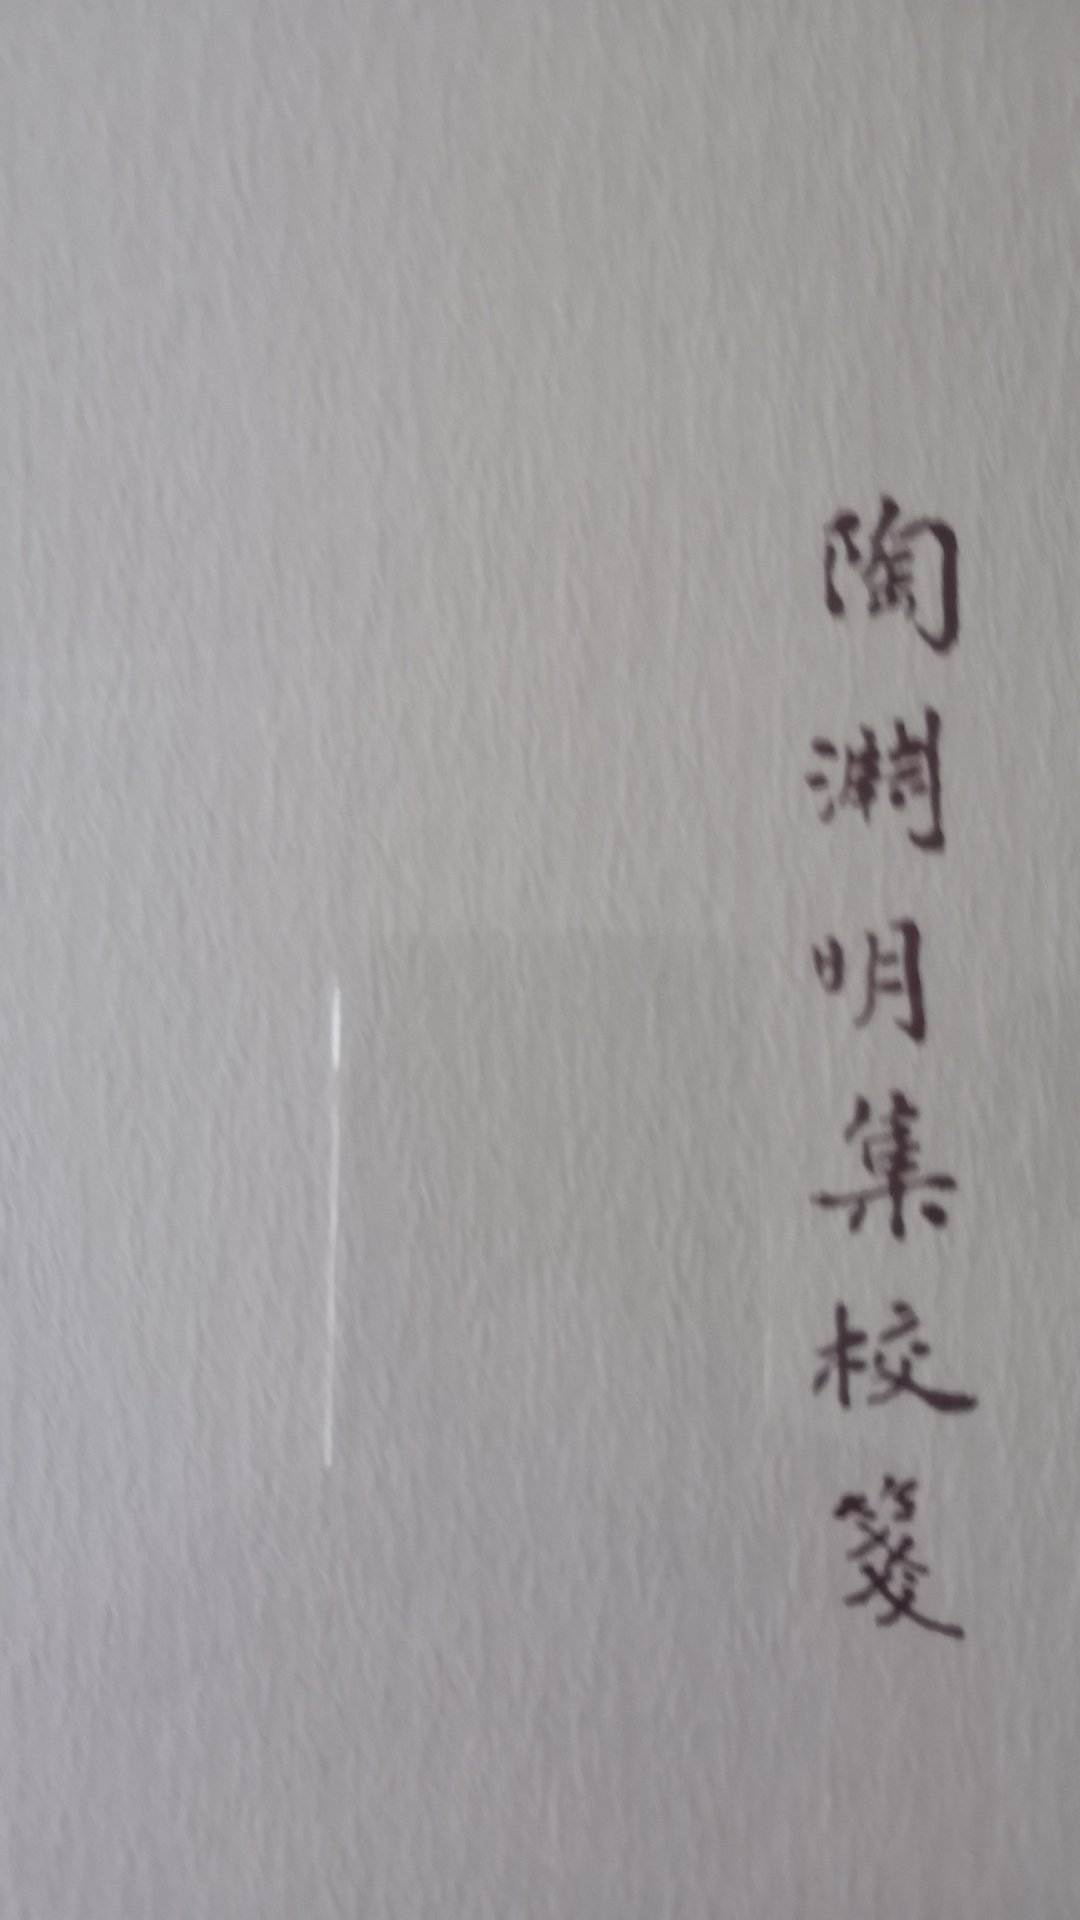 陶淵明集校箋